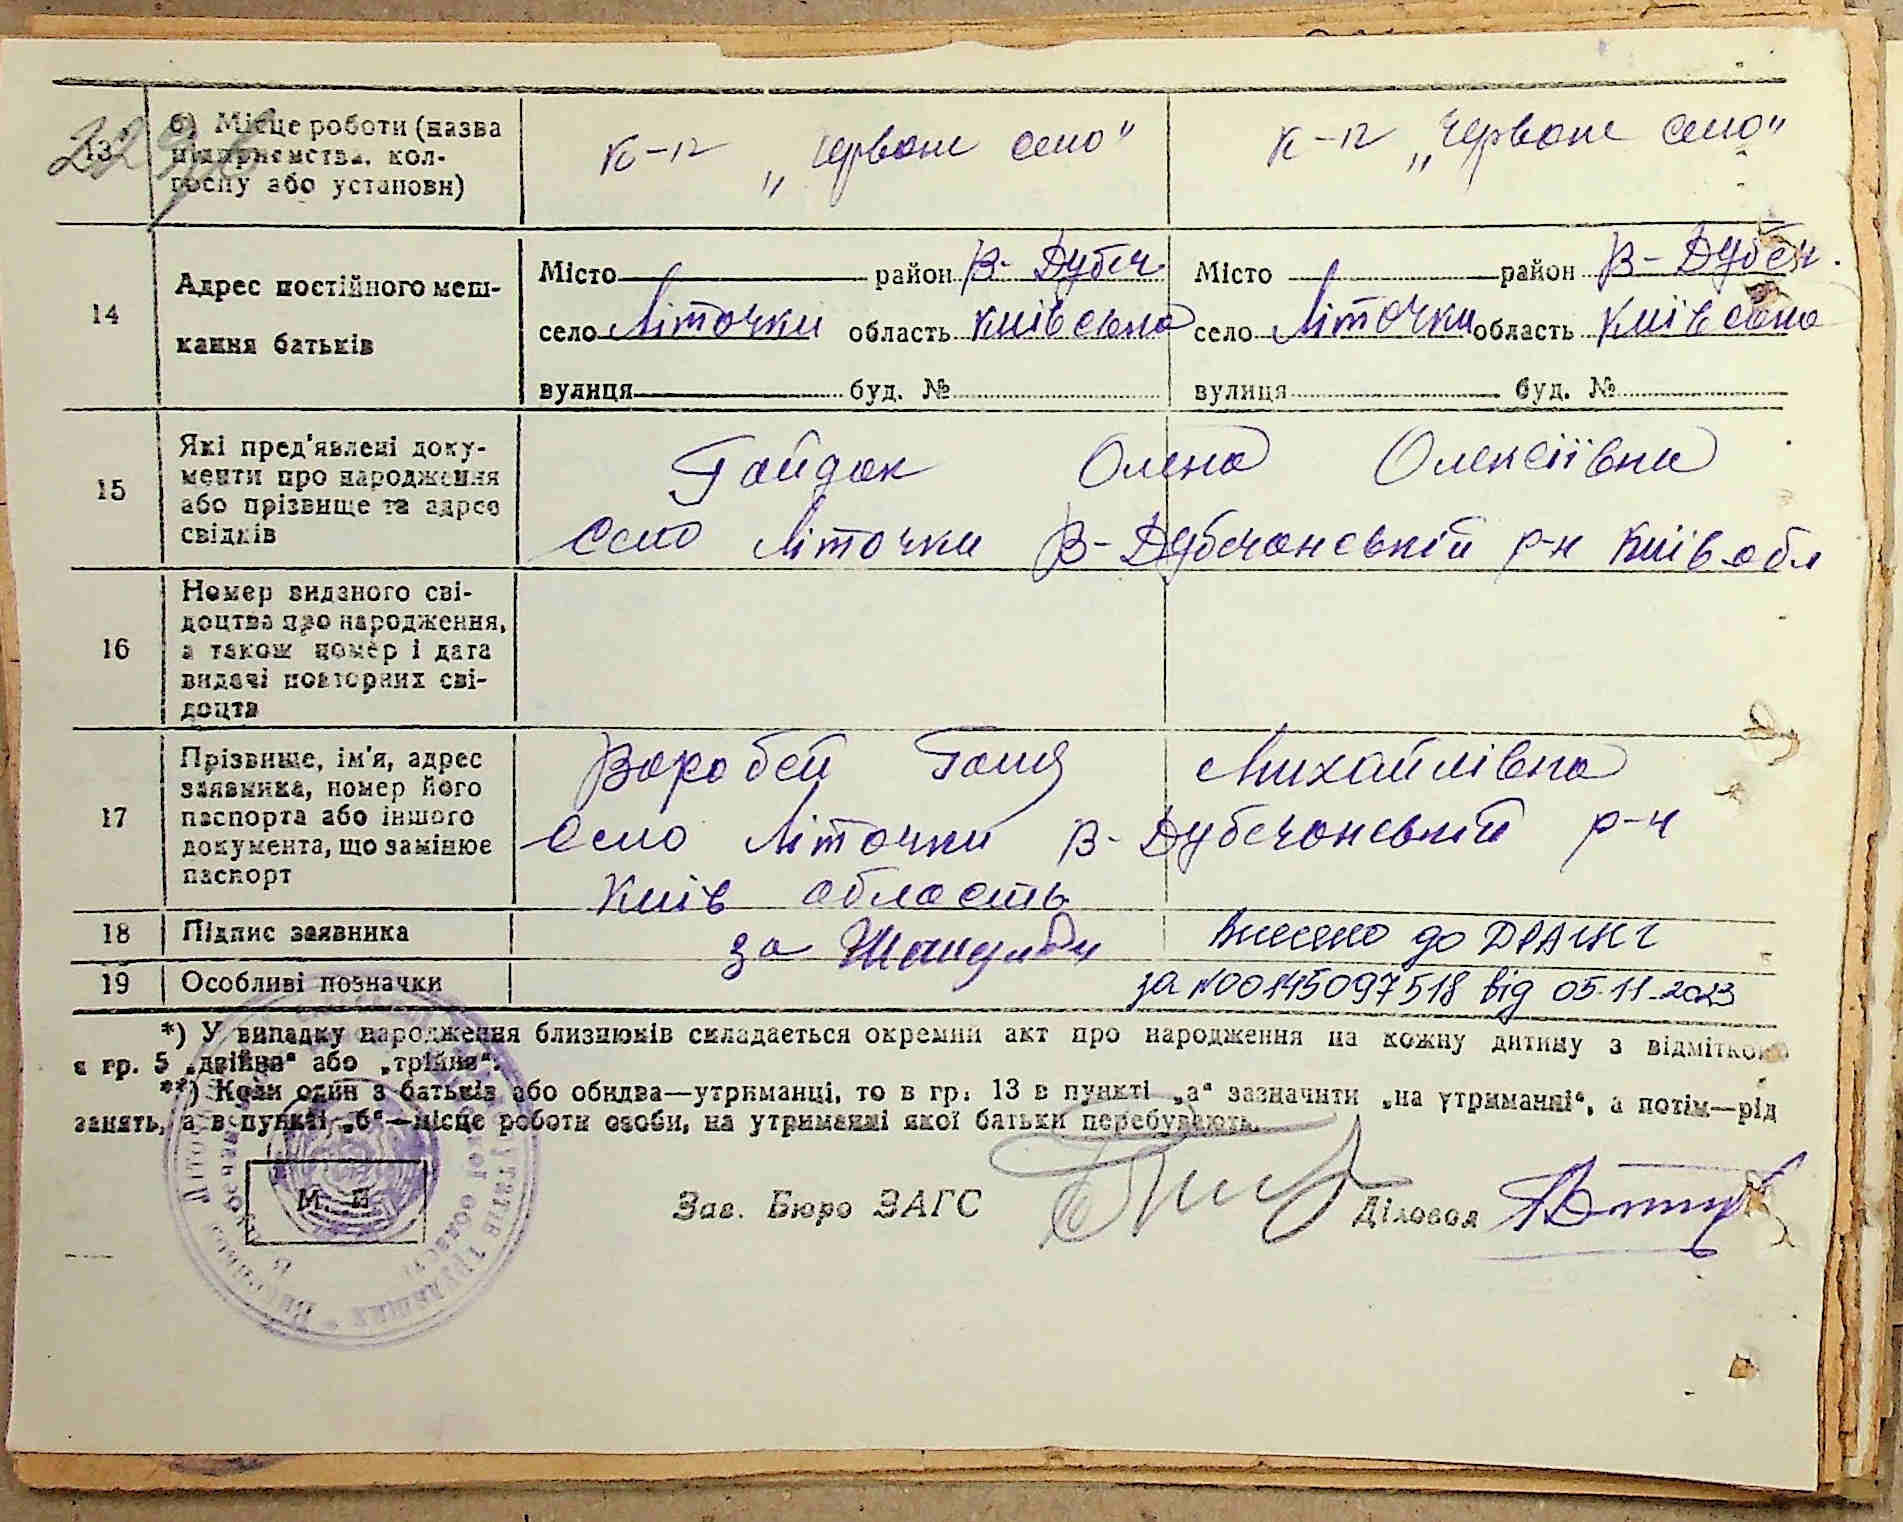 13 б) Місце роботи (назва підприємства, колгоспу або установи) к-п „Червоне село" к-п „Червоне село"
14 Адрес постійного мешкання батьків
Місто район В-Дубеч Місто район В-Дубеч.
село Літочки область Київська село Літочки область Київська
вулиця буд. № вулиця буд. №
15 Які пред'явлені документи про народження або прізвище та адрес свідків
Гайдак Олена Олексіївна
Село Літочки В-Дубечанський р-н Київ обл
16 Номер виданого свідоцтва про народження, а також номер і дата видачі повторних свідоцтв
17 Прізвище, ім'я, адрес заявника, номер його паспорта або іншого документа, що замінює паспорт
Воробей Ганя Михайлівна
Село Літочки В-Дубечанський р-н
Київ область
18 Підпис заявника за Внесено до ДРАЦСГ
19 Особливі позначки за №00145097518 від 05.11.2023
*) У випадку народження близнюків складається окремий акт про народження на кожну дитину з відміткою
в гр. 5 „двійня" або „трійня".
**) Коли один з батьків або обидва—утриманці, то в гр. 13 в пункті „а" зазначити „на утриманні", а потім—рід
занять, а в пункті „б"—місце роботи особи, на утриманні якої батьки перебувають.
М. П. Зав. Бюро ЗАГС Діловод